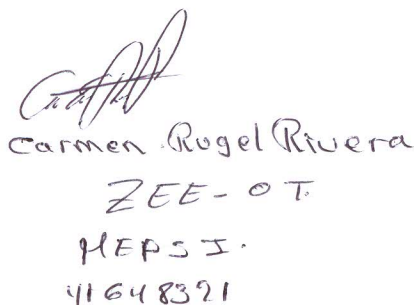 Carmen Rugel Rivera
ZEE - OT.
MEPSI.
41648321